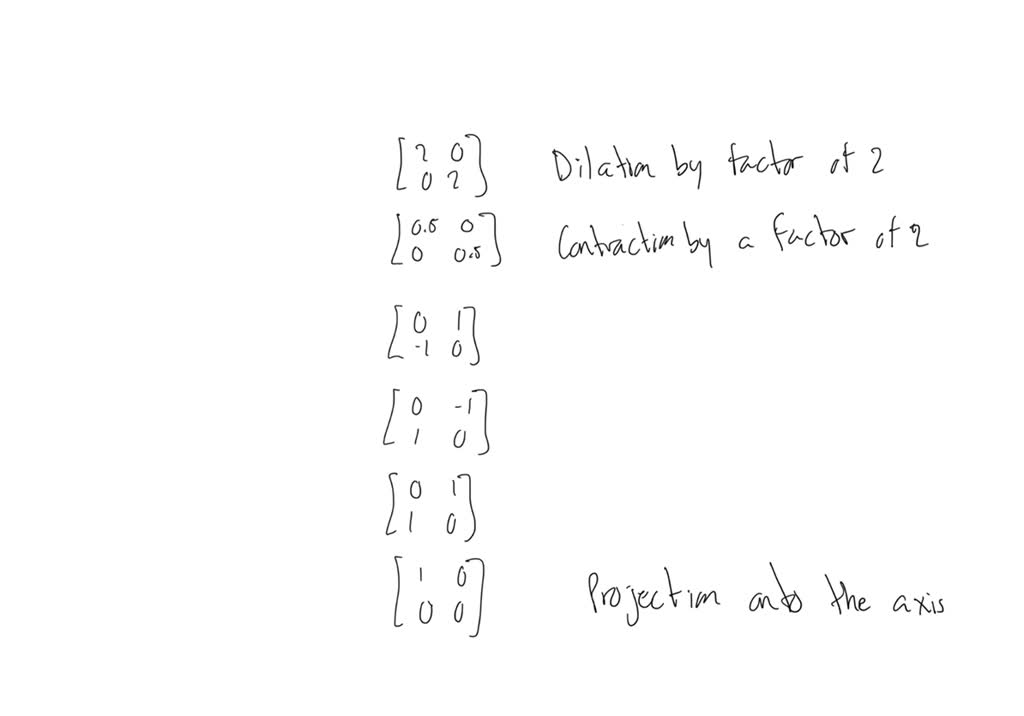 [2 0 Dilation by factor of 2
0 2]
[0.5 0 Contraction by a factor of 2
0 0.5]
[0 1
-1 0]
[0 -1
1 0]
[0 1
1 0]
[1 0
0 0] Projection onto the axis